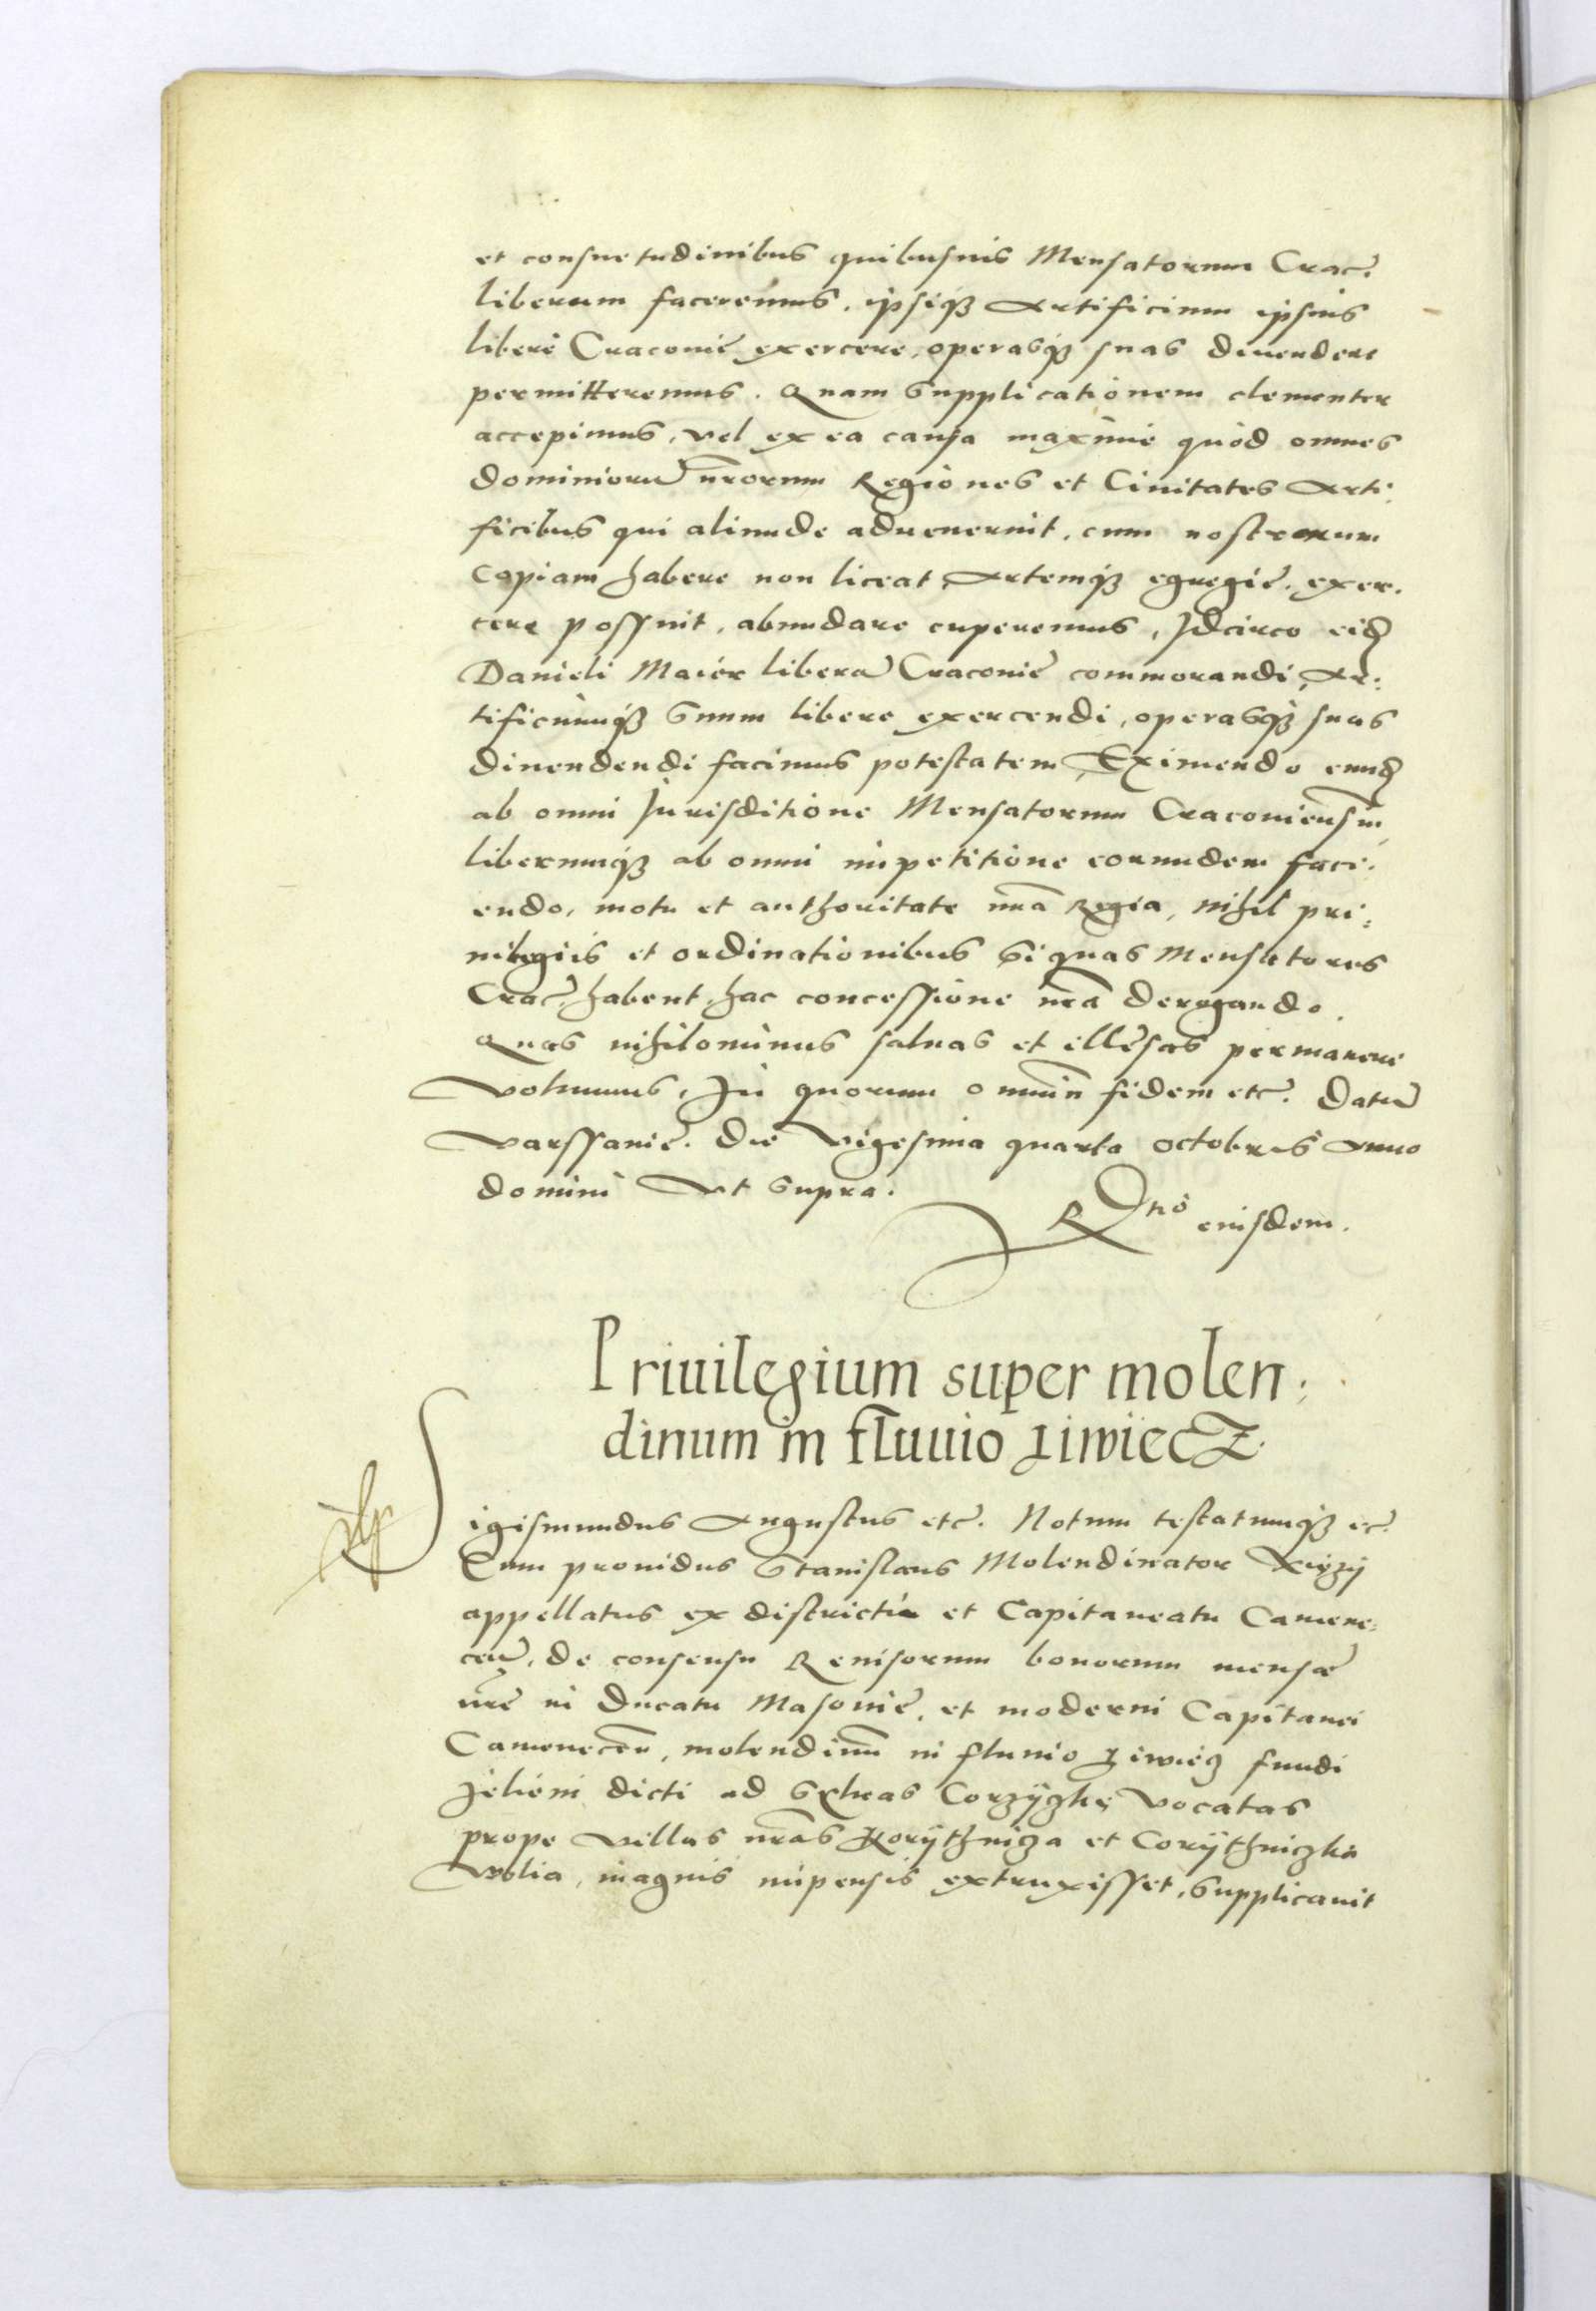 et consuetudinibus quibusuis Mensatorum Crac̃.
liberum faceremus, ipsiq3 Artificium ipsius
liberè Cracouiȩ exercere, operasq3 suas diuendere
permitteremus. Quam Supplicationem clementer
accepimus, vel ex ea causa maximè quòd omnes
dominiorũ nrõrum Regiones et Ciuitates Arti:
ficibus qui aliunde aduenerint, cum nostrorum
Copiam habere non liceat, Artemq3 egregiè exer:
cere possint, abundare cuperemus, Idcirco eid̃
Danieli Maier liberã Cracouiȩ commorandi, Ar:
tificiumq3 Suum libere exercendi, operasq3 suas
diuendendi facimus potestatem, Eximendo eund̃
ab omni Jurisditione Mensatorum Cracouieñsiũ,
liberumq3 ab omni impetitione eorundem faci:
endo, motu et authoritate nrã Regia, nihil pri:
uilegiis et ordinationibus Si quas Mensatores
Crac̃. habent, hac concessione nrã derogando.
Quas nihilominus saluas et illesas permanere
Volumus, In quorum omniũ fidem etc̃. Datũ
Varssauiȩ. Die Vigesima quarta Octobris Anno
domini Vt Supra.
R Dnis eiusdem.
Priuilegium super molen:
dinum in fluuio Liwiecz.
Sigismundus Augustus etc̃. Notum testatumq3 ec̃.
Cum prouidus Stanislaus Molendinator
appellatus ex districtu et Capitaneatu Camene:
ceñ, de consensu Reuisorum bonorum mensæ
nrȩ in Ducatu Masouiȩ, et moderni Capitanei
Cameneceñ, molendinũ in fluuio Liwiecz fundi
dicti ad Syluas Vocatas
prope Villas nrãs Korÿthnicza et Corÿthniczka
Volia, magnis impensis extruxisset, Supplicauit